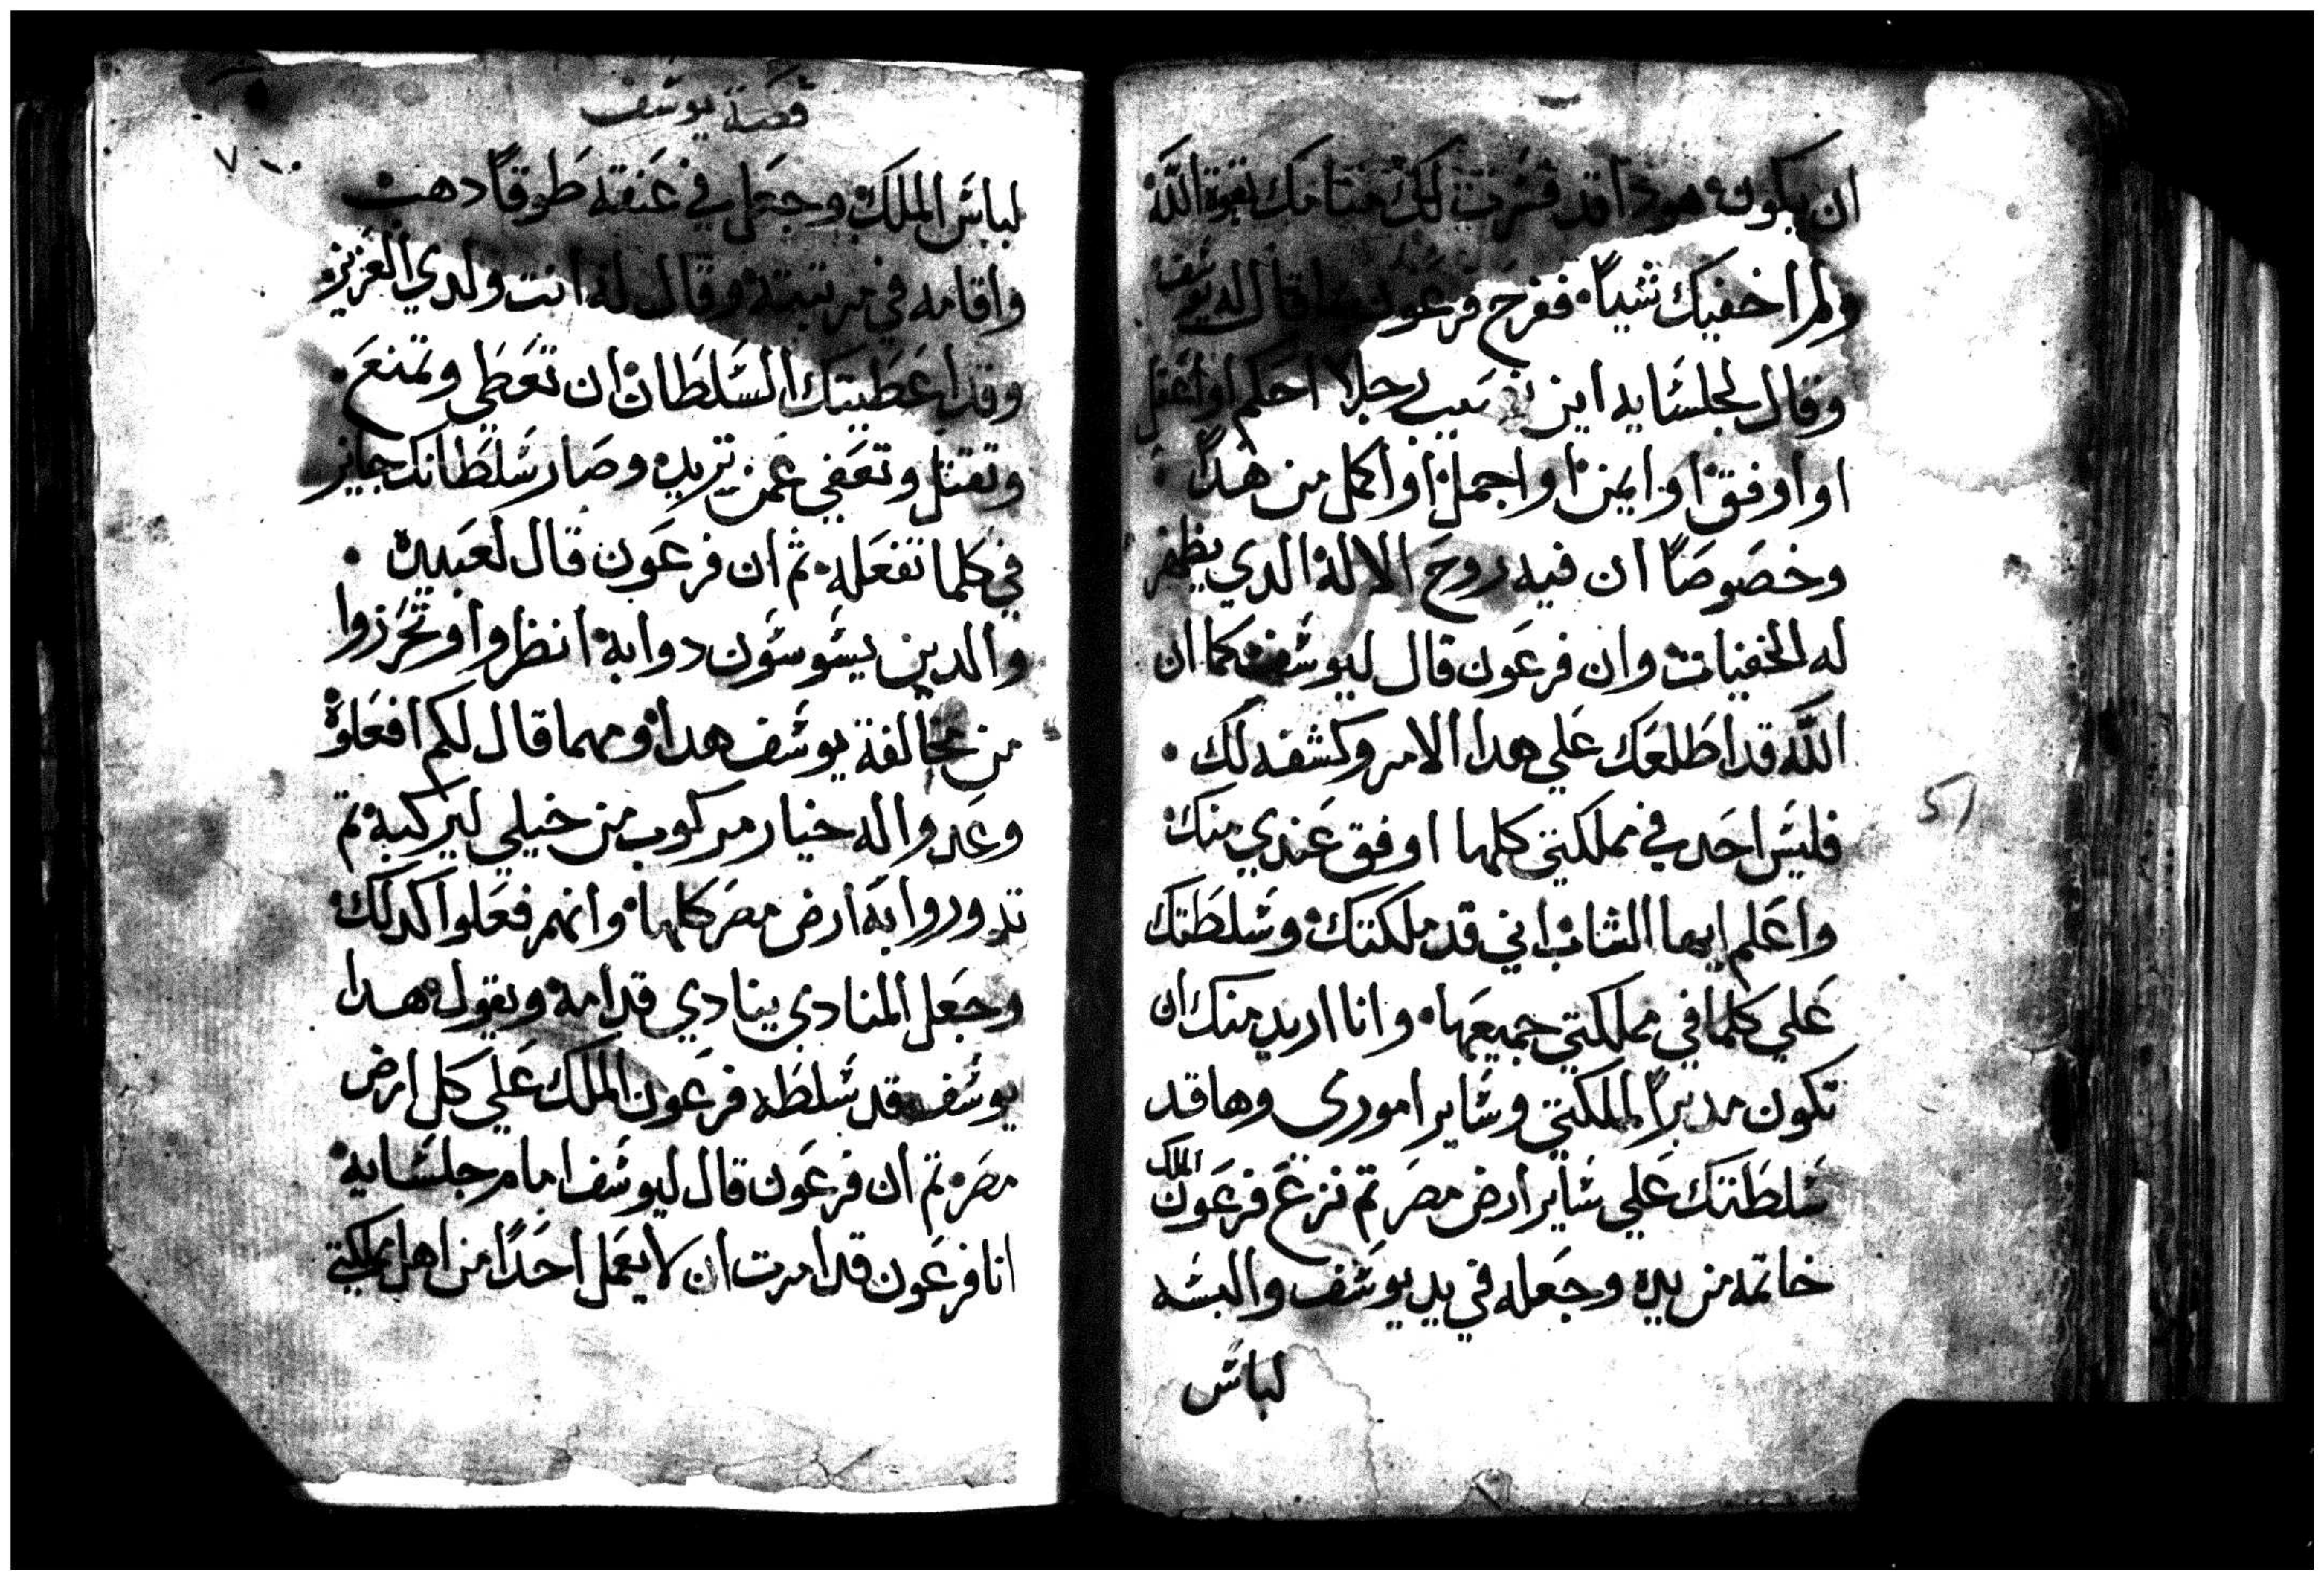 ان يكون هودا قد فسرت لك منامك بقوة الله
ولم اخفيك شياً ففرح فرعون بما قال له يوسف
وقال لجلسايه اين رجلا احكم او اعقل
او اوفق او ايمن او اجمل او اكمل من هدا
وخصوصاً ان فيه روح الاله الدي يظهر
له الخفيات وان فرعون قال ليوسف كما ان
الله قد اطلعك علي هدا الامر وكشفه لك
فليس احد في مملكتي كلها اوفق عندي منك
واعلم ايها الشاب اني قد ملكتك وسلطتك
علي كلما في مملكتي جميعها وانا اريد منك ان
تكون مدبراً لمملكتي وساير اموري وها قد
سلطتك علي ساير ارض مصر تم نزع فرعون الملك
خاتمه من يده وجعله في يد يوسف والبسه
لباس
٢١
قصة يوسف
٧
لباس الملك وجعل في عنقه طوقاً دهب
واقامه في مرتبته وقال له انت ولدي العزيز
وقد اعطيتك السلطان ان تعطي وتمنع
وتقتل وتعفي عمن تريده وصار سلطانك جايز
في كلما تفعله ثم ان فرعون قال لعبيده
والدين يسوسون دوابه انظروا وتحرزوا
من مخالفة يوسف هدا ومهما قال لكم افعلوه
وعدوا له خيار مركوب من خيلي ليركبه تم
تدوروا به ارض مصر كلها وانهم فعلوا كدلك
وجعل المنادي ينادي قدامه ويقول هدا
يوسف قد سلطه فرعون الملك علي كل ارض
مصر تم ان فرعون قال ليوسف امام جلسايه
انا فرعون قد امرت ان لا يعمل احداً من اهل مملكتي